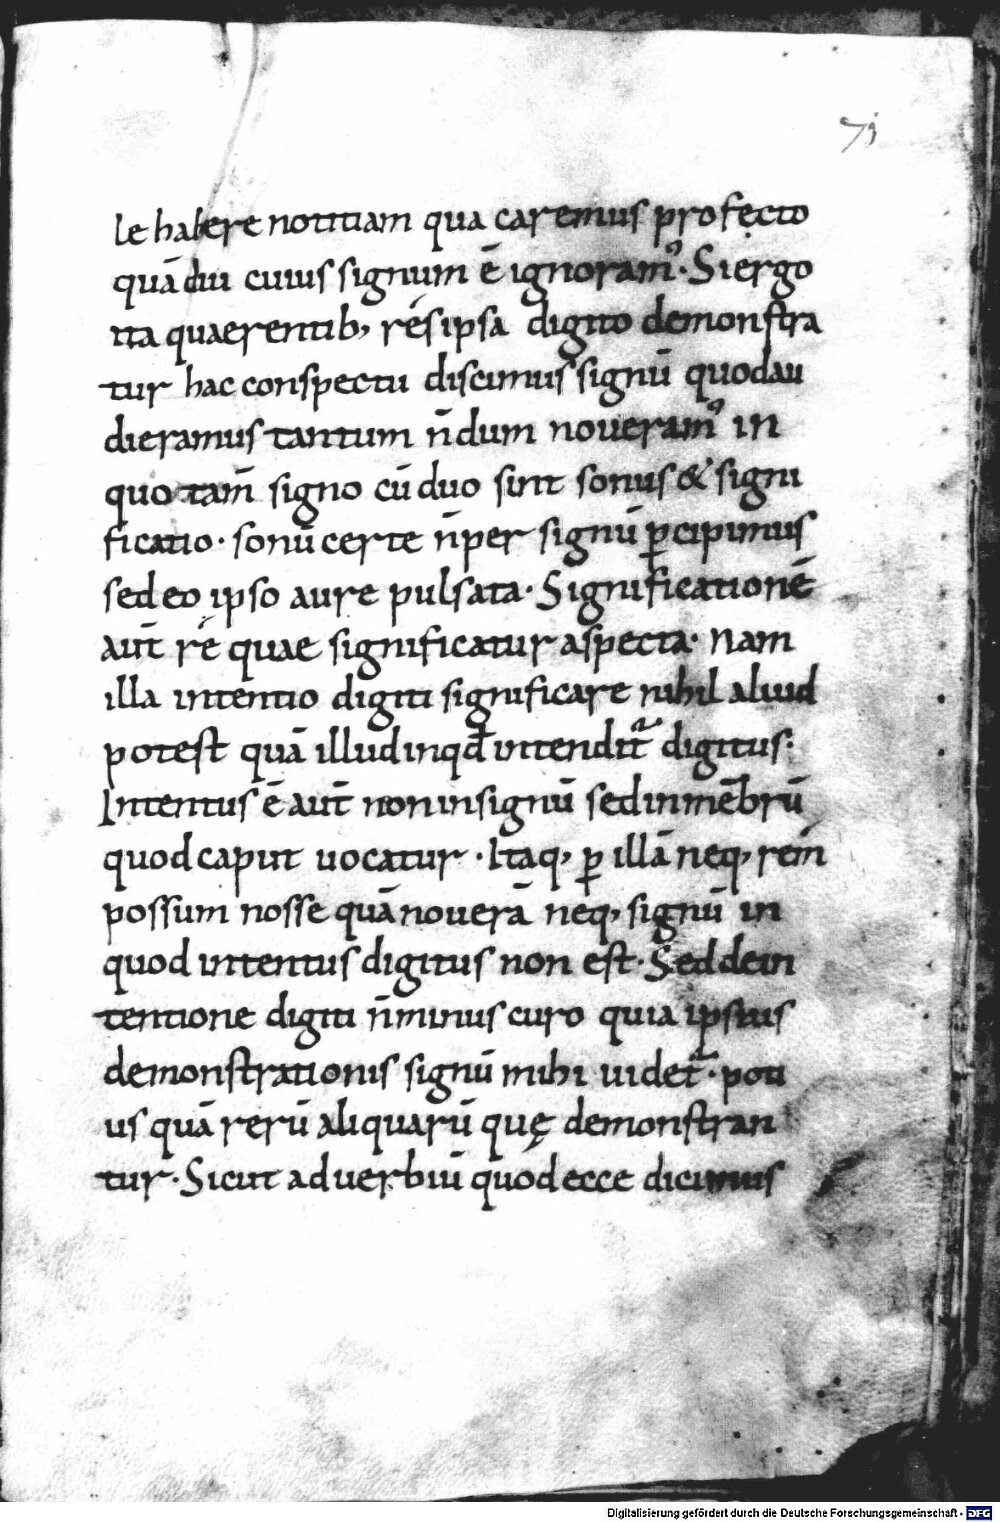 71
le habere notitiam qua caremus profecto
quā diu cuius signum ē ignoram᾽· Si ergo
ita quaerentib, res ipsa digito demonstra
tur hac conspectu discimus signū quod au
dieramus tantum n̄dum noueram᾽ in
quo tam̄ signo cū duo sint sonus & signi
ficatio · sonū certe n̄ per signū ꝑcipimus
sed eo ipso aure pulsata · Significationē
aut̄ rē quae significatur aspecta · Nam
illa intentio digiti significare nihil aliud
potest quā illud inqđ intendit᷑ digitus·
Intentus ē aut̄ non in signū sed in mēbrū
quod caput uocatur · Itaq, ꝑ illā neq, rem
possum nosse quā nouerā neq, signū in
quod intentus digitus non est · Sed de in
tentione digiti n̄ minus curo quia ipsius
demonstrationis signū mihi uidet᷑ · poti
us quā rerū aliquarū quę demonstran
tur · Sicut aduerbiū quod ecce dicimus
Digitalisierung gefördert durch die Deutsche Forschungsgemeinschaft - DFG